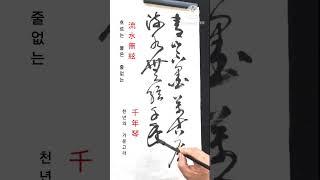 青山不墨萬古屏
流水無絃千年
流水無絃
千年琴
흐르는 물은 줄없는
천년의 거문고라
千
줄없는
천년